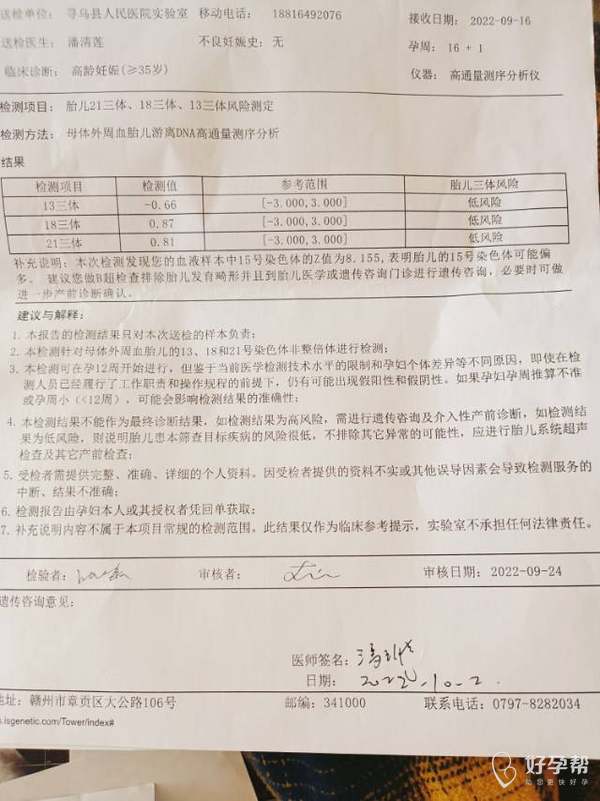 送检单位： 寻乌县人民医院实验室 移动电话： 18816492076 接收日期：2022-09-16
送检医生： 潘清莲 不良妊娠史：无 孕周：16 + 1
临床诊断： 高龄妊娠(≥35岁) 仪器：高通量测序分析仪
检测项目：胎儿21三体、18三体、13三体风险测定
检测方法：母体外周血胎儿游离DNA高通量测序分析
结果
检测项目 检测值 参考范围 胎儿三体风险
13三体 -0.66 [-3.000,3.000] 低风险
18三体 0.87 [-3.000,3.000] 低风险
21三体 0.81 [-3.000,3.000] 低风险
补充说明：本次检测发现您的血液样本中15号染色体的Z值为8.155,表明胎儿的15号染色体可能偏
多。 建议您做B超检查排除胎儿发育畸形并且到胎儿医学或遗传咨询门诊进行遗传咨询，必要时可做
进一步产前诊断确认。
建议与解释：
1. 本报告的检测结果只对本次送检的样本负责；
2. 本检测针对母体外周血胎儿的13、18和21号染色体非整倍体进行检测；
3. 本检测可在孕12周开始进行，但鉴于当前医学检测技术水平的限制和孕妇个体差异等不同原因，即使在检
测人员已经履行了工作职责和操作规程的前提下，仍有可能出现假阳性和假阴性。如果孕妇孕周推算不准
或孕周小（<12周），可能会影响检测结果的准确性；
4. 本检测结果不能作为最终诊断结果，如检测结果为高风险，需进行遗传咨询及介入性产前诊断，如检测结
果为低风险，则说明胎儿患本筛查目标疾病的风险很低，不排除其它异常的可能性，应进行胎儿系统超声
检查及其它产前检查；
5. 受检者需提供完整、准确、详细的个人资料。因受检者提供的资料不实或其他误导因素会导致检测服务的
中断、结果不准确；
6. 检测报告由孕妇本人或其授权者凭回单获取；
7. 补充说明内容不属于本项目常规的检测范围。此结果仅作为临床参考提示，实验室不承担任何法律责任。
检验者： 审核者： 审核日期：2022-09-24
遗传咨询意见：
医师签名：
日期： 2022-10-2.
地址：赣州市章贡区大公路106号 邮编：341000 联系电话：0797-8282034
.isgenetic.com/Tower/index#
好孕帮
助您更快好孕